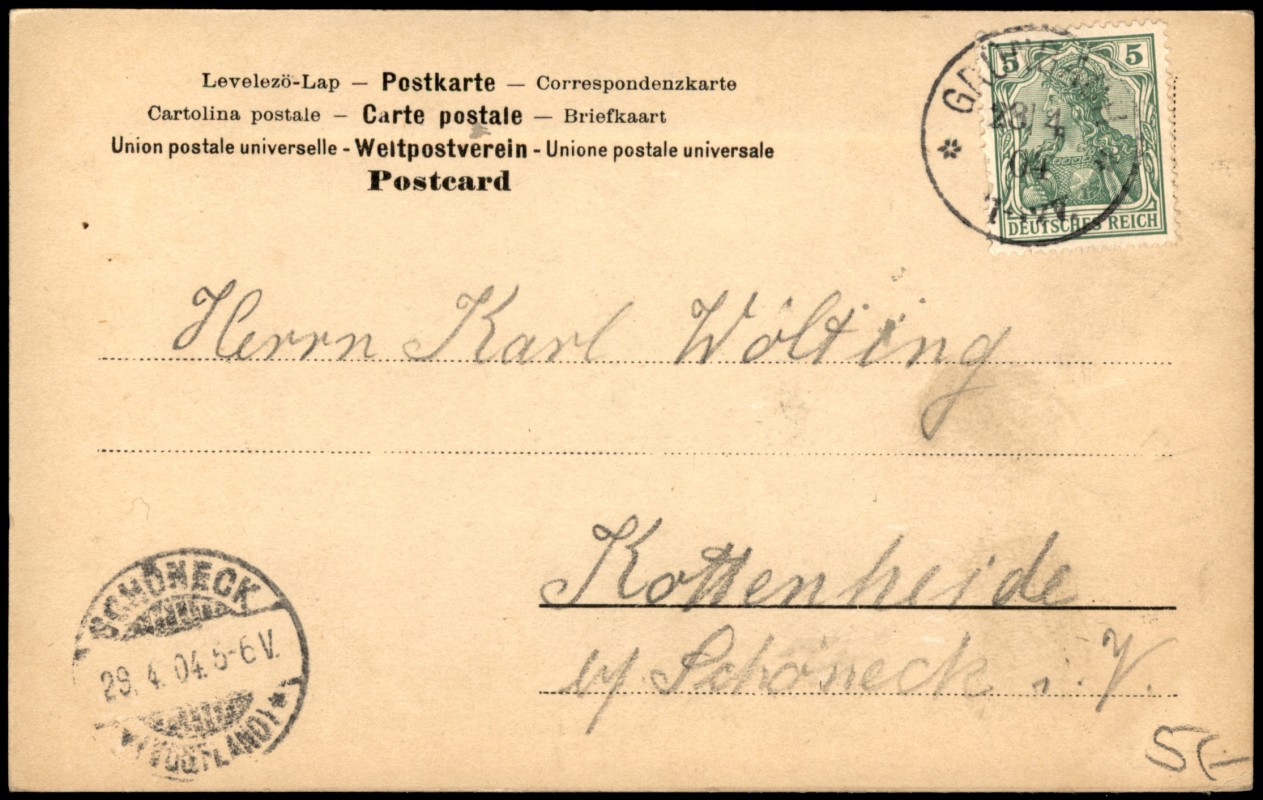 Levelező-Lap — Postkarte — Correspondenzkarte
Cartolina postale — Carte postale — Briefkaart
Union postale universelle - Weltpostverein - Unione postale universale
Postcard
5 5
DEUTSCHES REICH
04
Herrn Karl Wölting
Kottenheide
b/ Schöneck i. V.
SCHÖNECK
29. 4. 04. 5-6 V.
* (VOGTLAND) *
5/-